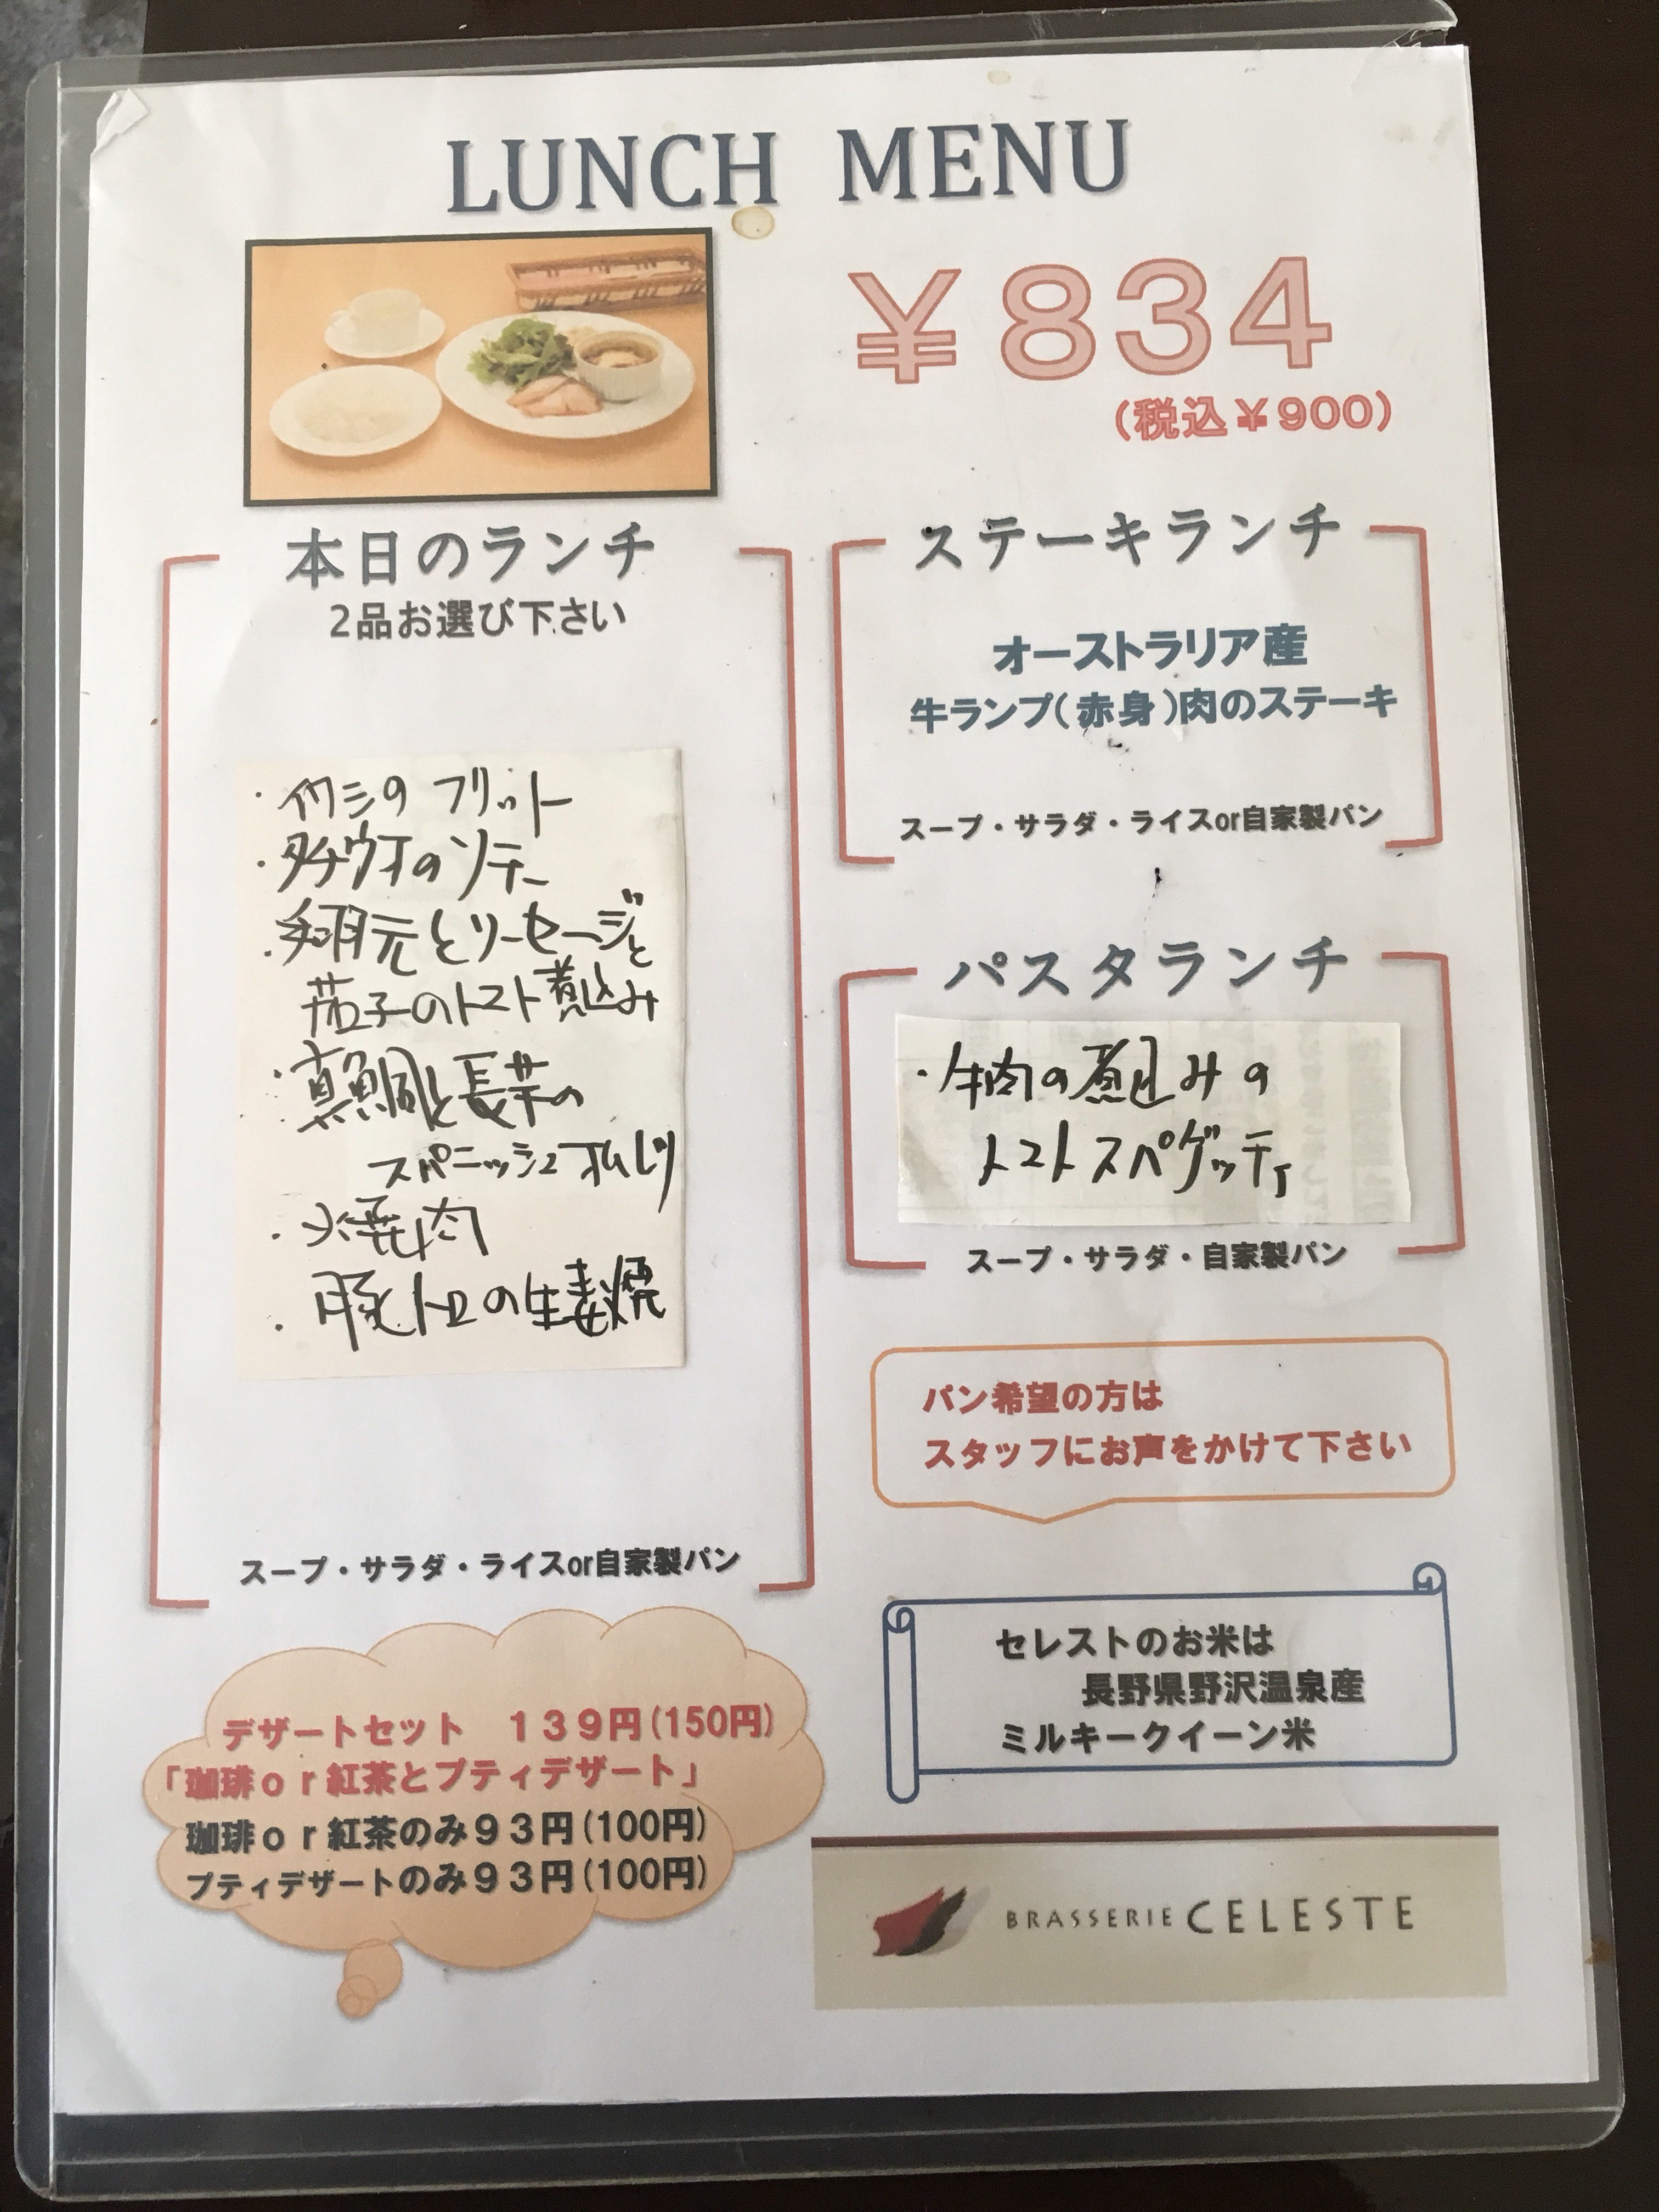 LUNCH MENU
￥834
(税込￥900)
本日のランチ
2品お選び下さい
・イワシの フリット
・タチウオのソテー
・手羽元とソーセージと
茄子のトマト煮込み
・真鯛と長芋の
スパニッシュオムレツ
・焼肉
・豚トロの生姜焼
スープ・サラダ・ライスor自家製パン
ステーキランチ
オーストラリア産
牛ランプ(赤身)肉のステーキ
スープ・サラダ・ライスor自家製パン
パスタランチ
・牛肉の煮込みの
トマトスパゲッティ
スープ・サラダ・自家製パン
パン希望の方は
スタッフにお声をかけて下さい
セレストのお米は
長野県野沢温泉産
ミルキークイーン米
デザートセット　１３９円(150円)
「珈琲ｏｒ紅茶とプティデザート」
珈琲ｏｒ紅茶のみ９３円(100円)
プティデザートのみ９３円(100円)
BRASSERIE CELESTE